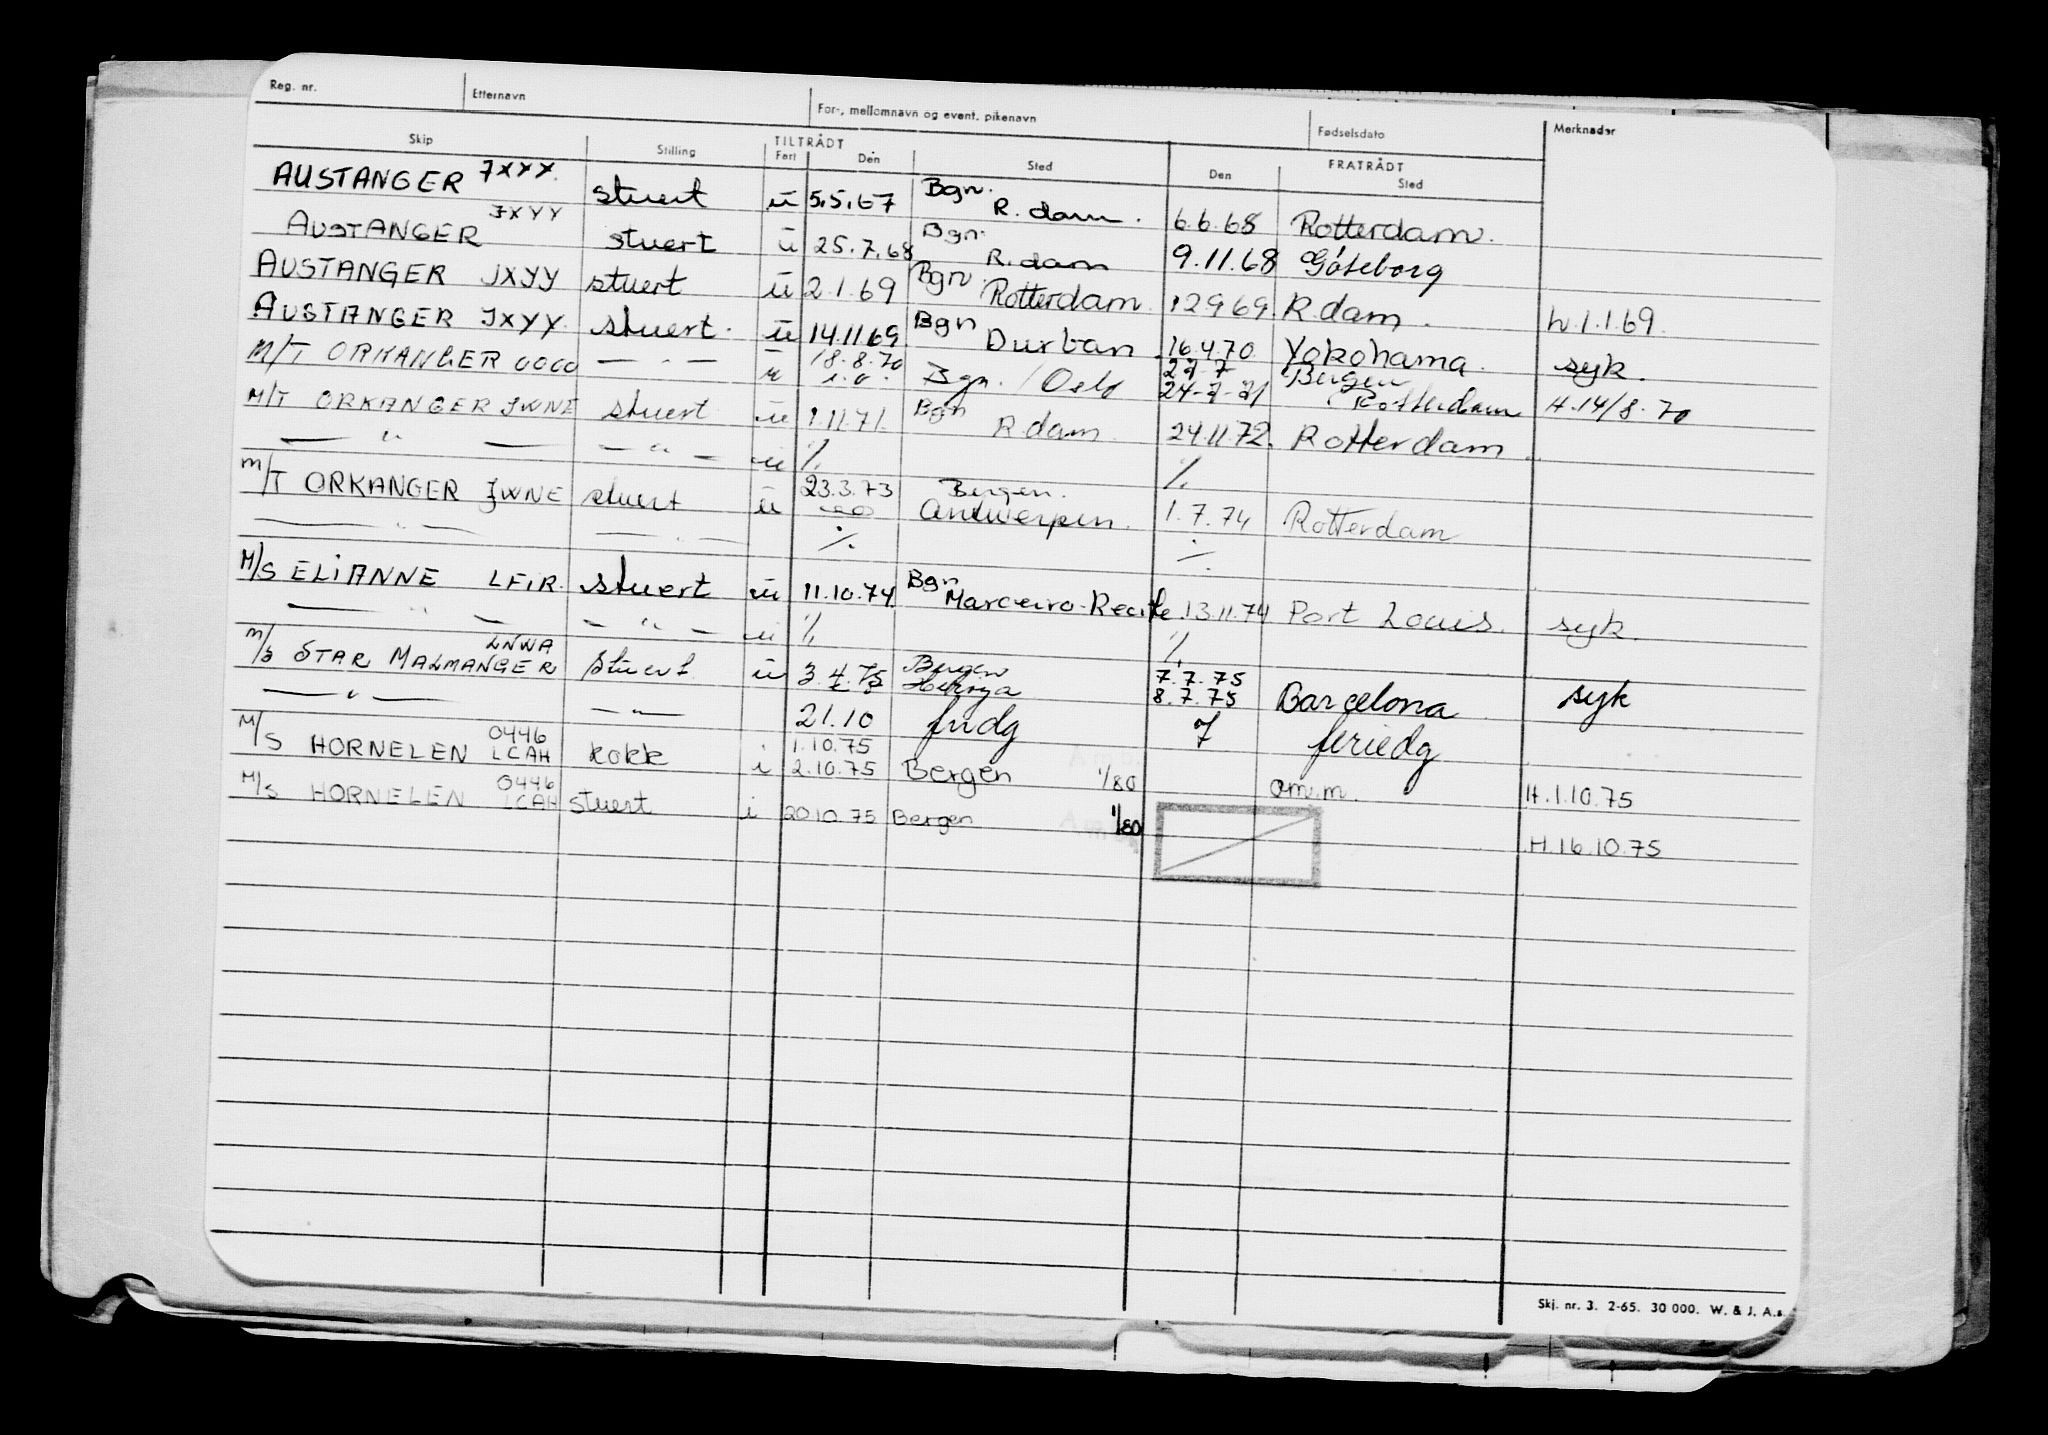 Reg. nr. Etternavn For-, mellomnavn og event. pikenavn Fødselsdato Merknader
TILTRÅDT FRATRÅDT
Skip Stilling Fart Den Sted Den Sted
AUSTANGER JXYX. stuert ū 5.5.67 Bgn. R.dam. 6.6.68 Rotterdam.
AUSTANGER JXYY stuert ū 25.7.68 Bgn. R.dam 9.11.68 Göteborg
AUSTANGER JXYY stuert ū 2.1.69 Bgn. Rotterdam 12969 R.dam. h.1.1.69.
AUSTANGER JXYY. stuert. ū 14.11.69 Bgn Durban 16.4.70 Yokohama. syk.
M/T ORKANGER 0000 — " — ū 18.8.70 Bgn. / Oslo Bergen
24-7-71 Rotterdam H.14/8.70
M/T ORKANGER JWNE stuert ū 1.11.71. Bgn R.dam. 24.11.72. Rotterdam
— " — — " — ū % %
M/T ORKANGER JWNE stuert ū 23.3.73 Bergen. Antwerpen. 1.7.74 Rotterdam
— " — — " — % %
M/S ELIANNE LFIR. stuert ū 11.10.74 Bgn 13.11.74 Port Louis. syk.
— " — — " — ū % %
M/S STAR MALMANGER LNWA stuert ū 3.4.75 Bergen 7.7.75
8.7.75 Barcelona syk
— " — — " — 21.10 fridg 7 feriedg
M/S HORNELEN 0446 LCAH kokk i 1.10.75
2.10.75 Bergen 1/80 am.m. H.1.10.75
M/S HORNELEN 0446 LCAH stuert i 20.10.75 Bergen 1/80 H.16.10.75
Skj. nr. 3. 2-65. 30 000. W. & J. A.s